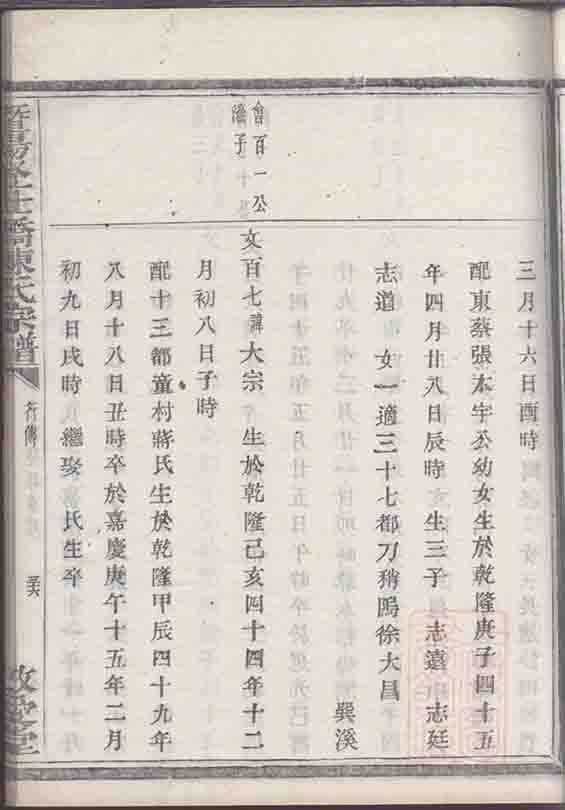 三月十六日酉時
配東蔡張本宇公幼女生於乾隆庚子四十五
年四月廿八日辰時 生三子 志遠 志廷
志道 女一適三十七都刀稍隖徐大昌
巽溪
會百一公
濬子
文百七諱大宗 生於乾隆己亥四十四年十二
月初八日子時
配十三都童村蔣氏生於乾隆甲辰四十九年
八月十八日丑時卒於嘉慶庚午十五年二月
初九日戌時 繼娶 氏生卒
暨陽 上橋陳氏宗譜
行傳
敬愛堂